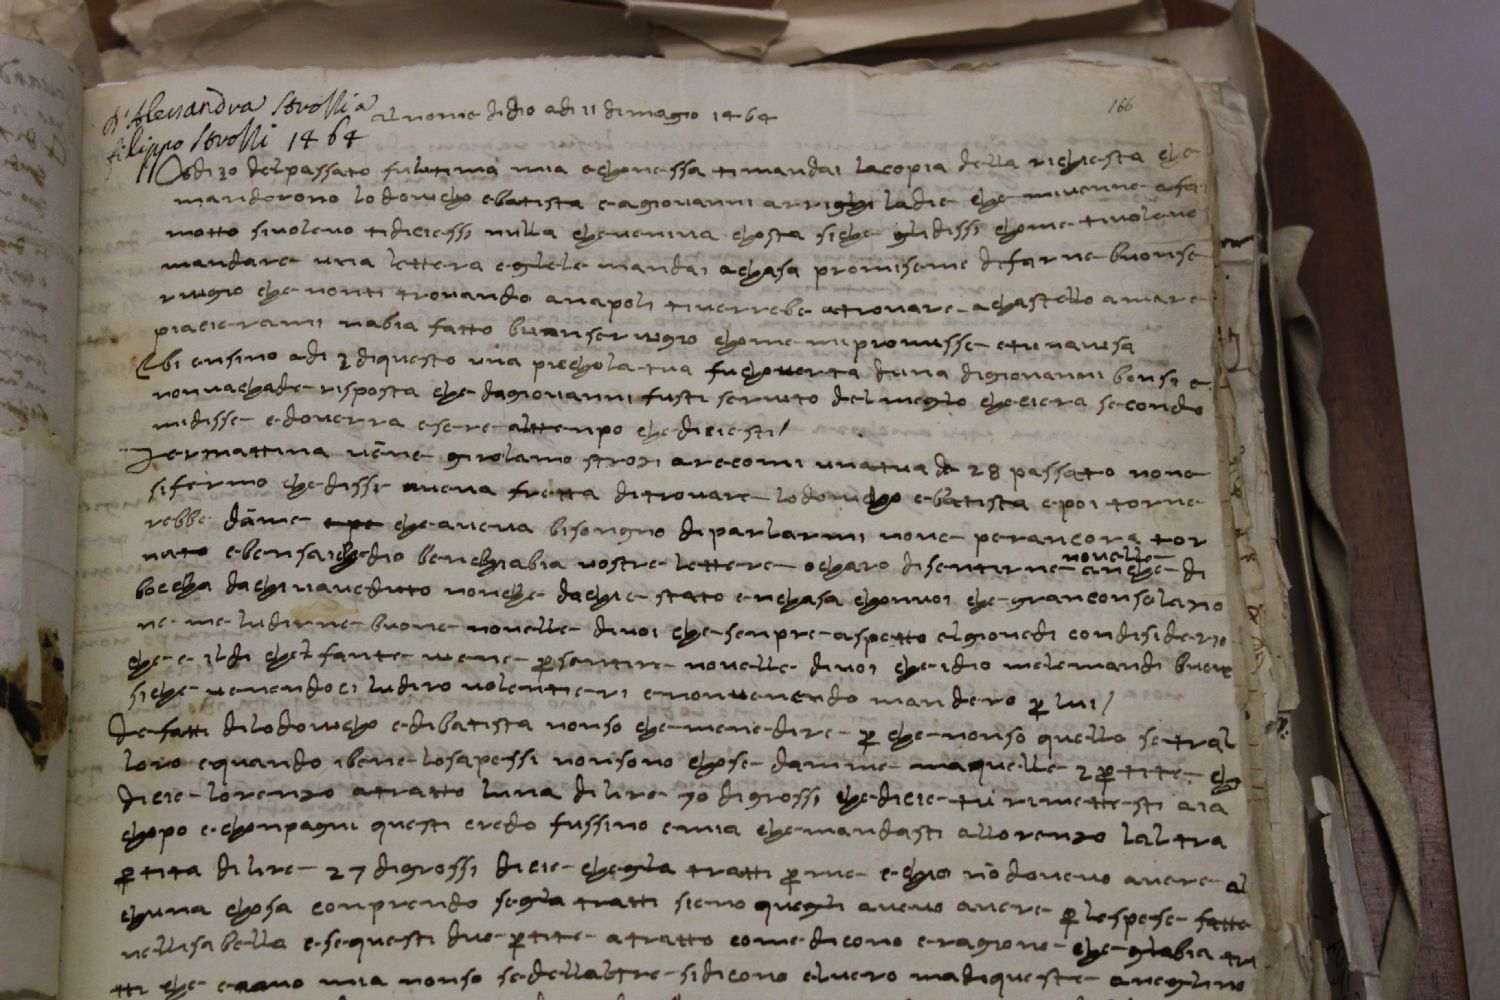 D'Alessandra Strozzi a
filippo Strozzi 1464
Al nome didio adi 11 dimagio 1464
166
Adi 20 delpassato fulutima mia echonessa timandai lacopia della richiesta che
mandorono lodovicho ebatista eagiovanni arrighi ladie che mivenne afar
motto sivolevo tidiciessi nulla cheveniva chosta siche glidissi chome tivolevo
mandare una lettera egliele mandai achasa promiseme difarne buonse
rvigio che nonti trovando anapoli tiverrebe atrovare achastello amare
piacierami nabia fatto buonservigio chome mipromisse etunavisa
Ebi ensino adi 2 diquesto una pichola tua fu choverta duna digiovanni bonsi e
nonvachade risposta che dagiovanni fusti servito delmeglio checiera secondo
midisse edoverra esere altenpo chediciesti/
Iermattina vēne girolamo strozi arecomi unatua de 28 passato none
sifermo chedissi aveva fretta ditrovare lodovicho ebatista epoi torne
rebbe dāme cheaveva bisongnio diparlarmi none perancora tor
nato ebensai chedio benchiabia vostre lettere ocharo disentirne novelle anche di
boccha dachi vaveduto nonche dachie stato enchasa chonvoi che granconsolazio
ne me ludirne buone novelle divoi che senpre aspetto elgiovedi condisiderio
che e ildi chel fante viene psentire novelle divoi che idio melemandi buone
siche venendoci ludiro volentieri enonvenendo mandero p lui/
De fatti dilodovicho edibatista nonso chemene dire p che nonso quello setral
loro equando ibene losapessi nonsono chose damme maquelle 2 ptite ch
dicie lorenzo atratto luna dilire 70 digrossi chedicie tu rimettesti aia
chopo echonpagni questi credo fussino emia chemandasti allorenzo laltra
ptita dilire 27 digrossi dicie chegla tratti pme echio nō dovevo avere al
chuna chosa conprendo segla tratti sieno quegli avevo avere p lespese fatte
nellisabella esequesti due ptite atratto come dicono eragione che glabia tra
tti che erano mia nonso sedellaltre sidicono elvero madiqueste aneglino